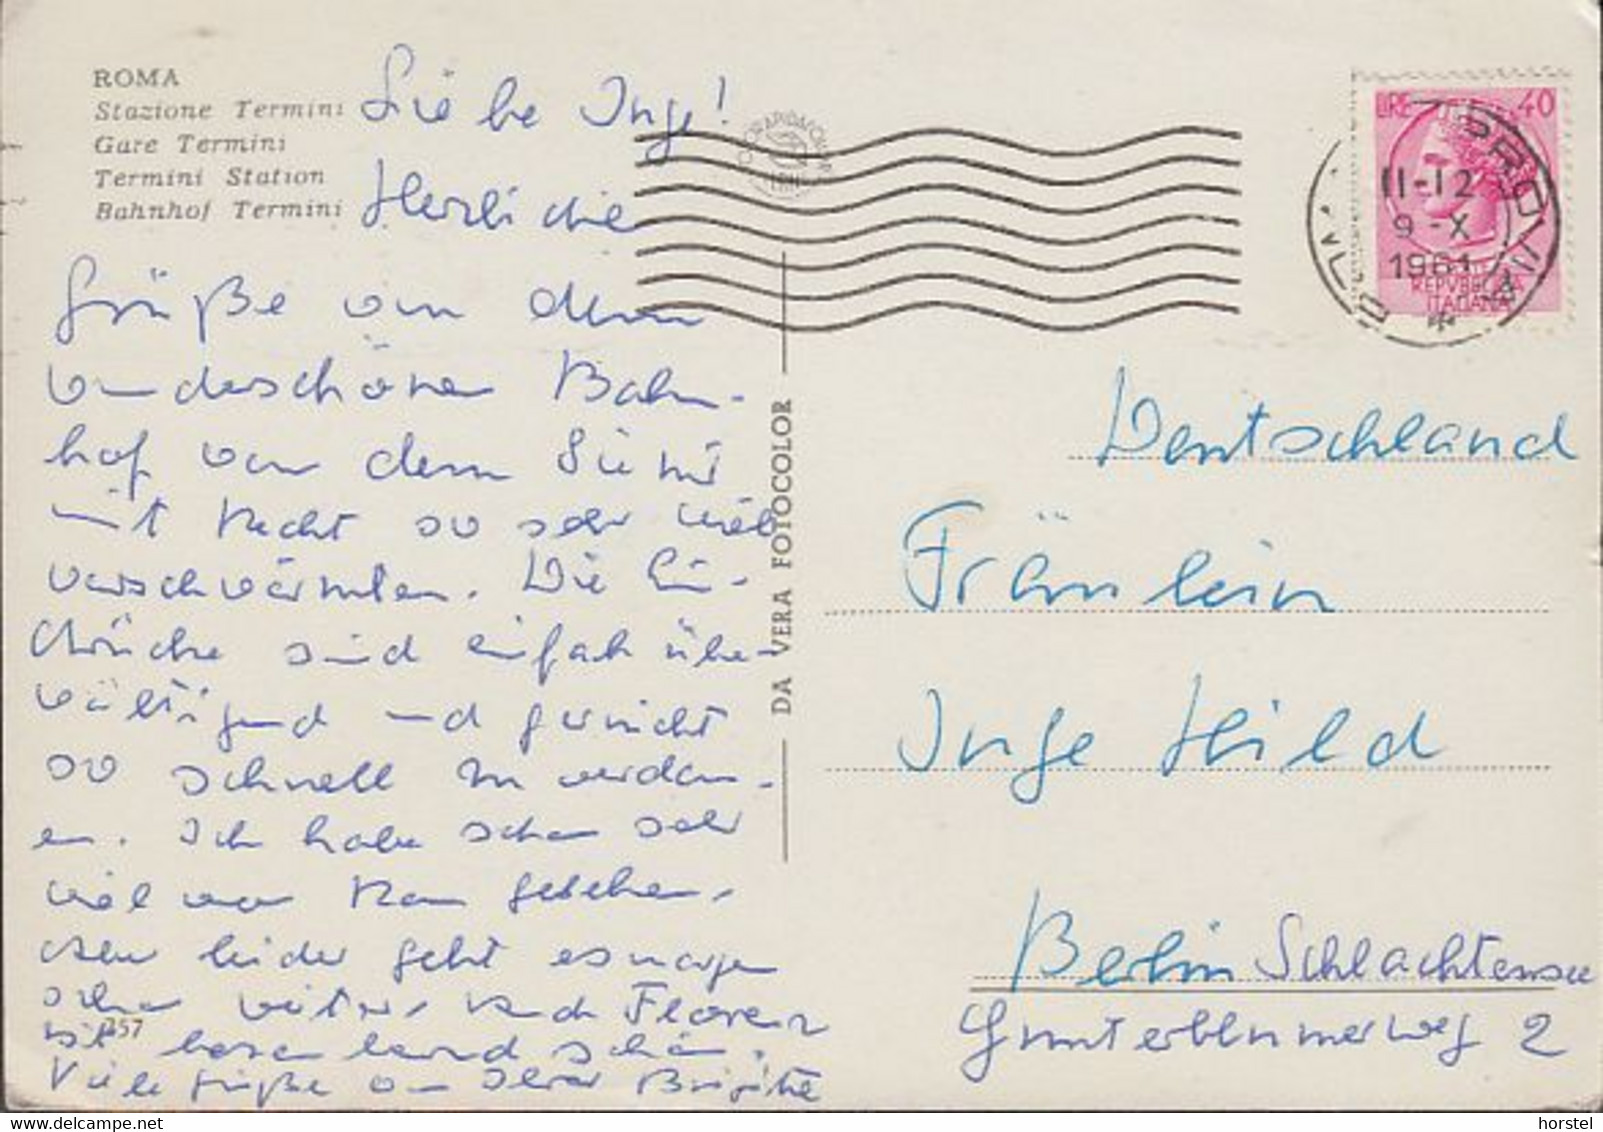 ROMA
Stazione Termini
Gare Termini
Termini Station
Bahnhof Termini
Liebe Inge!
Herzliche
Grüße von dem
wunderschönen Bahn-
hof von dem Sie mir
mit Recht so sehr viel
vorschwärmten. Die Ein-
drücke sind einfach über
wältigend und gar nicht
so schnell zu verdau-
en. Ich habe schon sehr
viel von Rom gesehen,
Aber leider geht es morgen
schon weiter, nach Florenz
Viele Grüße von Ihrer Brigitte
257
DA VERA FOTOCOLOR
LIRE 40
11-12
9-X
1961
REPVBBLICA
ITALIANA
Deutschland
Fräulein
Inge Hild
Berlin Schlachtensee
Gunterblumerweg 2
www.delcampe.net
horstel